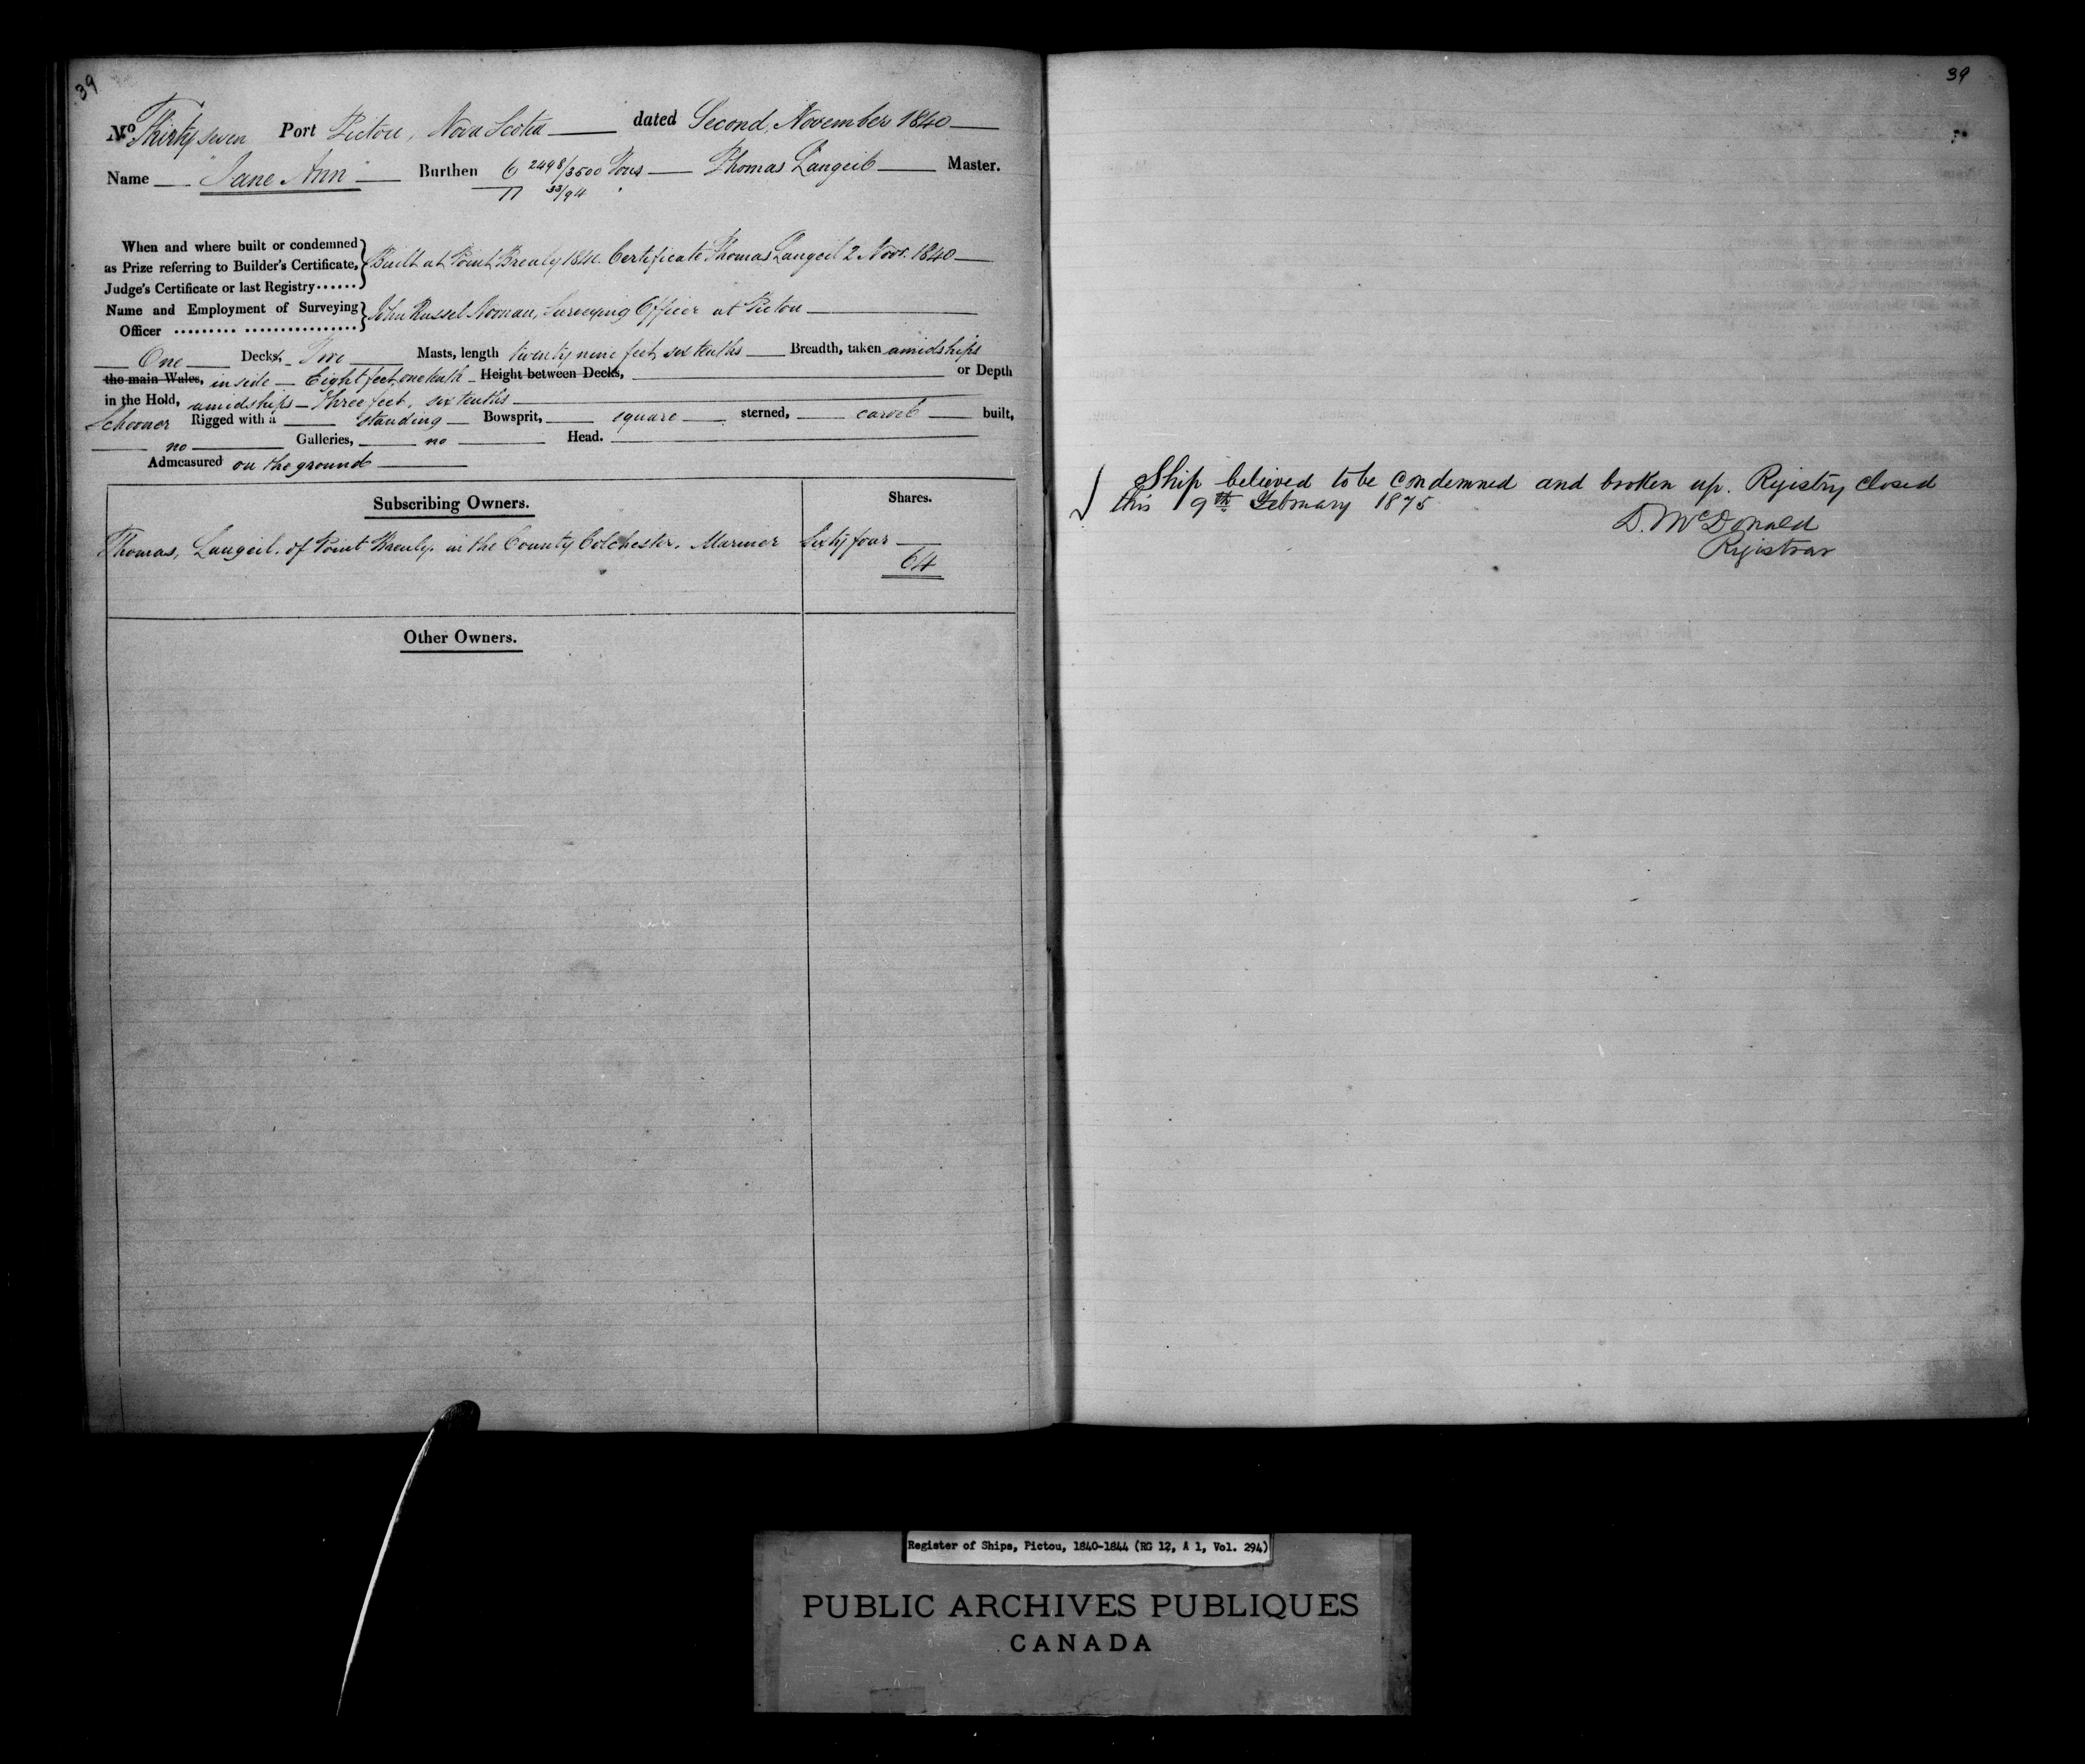 39
No Thirty seven Port Pictou, Nova Scotia dated Second, November 1840
Name "Jane Ann" Burthen 6 2498/3500 Tons Thomas Langeil Master.
11 33/94
When and where built or condemned
as Prize referring to Builder's Certificate,
Judge's Certificate or last Registry......
Built at Point Brealy 1840. Certificate Thomas Langeil 2 Novr. 1840
Name and Employment of Surveying
Officer ......... ................
John Russel Noonan, Surveying Officer at Pictou
One Decks, Two Masts, length twenty nine feet, six tenths Breadth, taken amidships
the main Wales, inside Eight feet, one tenth Height between Decks, or Depth
in the Hold, amidships three feet, six tenths
Schooner Rigged with a standing Bowsprit, square sterned, carvel built,
no Galleries, no Head.
Admeasured on the ground
Subscribing Owners. Shares.
Thomas, Langeil, of Point Brealy, in the County Colchester, Mariner Sixty four
64
Other Owners.
39
Ship believed to be condemned and broken up. Registry closed
this 9th February 1875
D. McDonald
Registrar
Register of Ships, Pictou, 1840-1844 (RG 12, A 1, Vol. 294)
PUBLIC ARCHIVES PUBLIQUES
CANADA